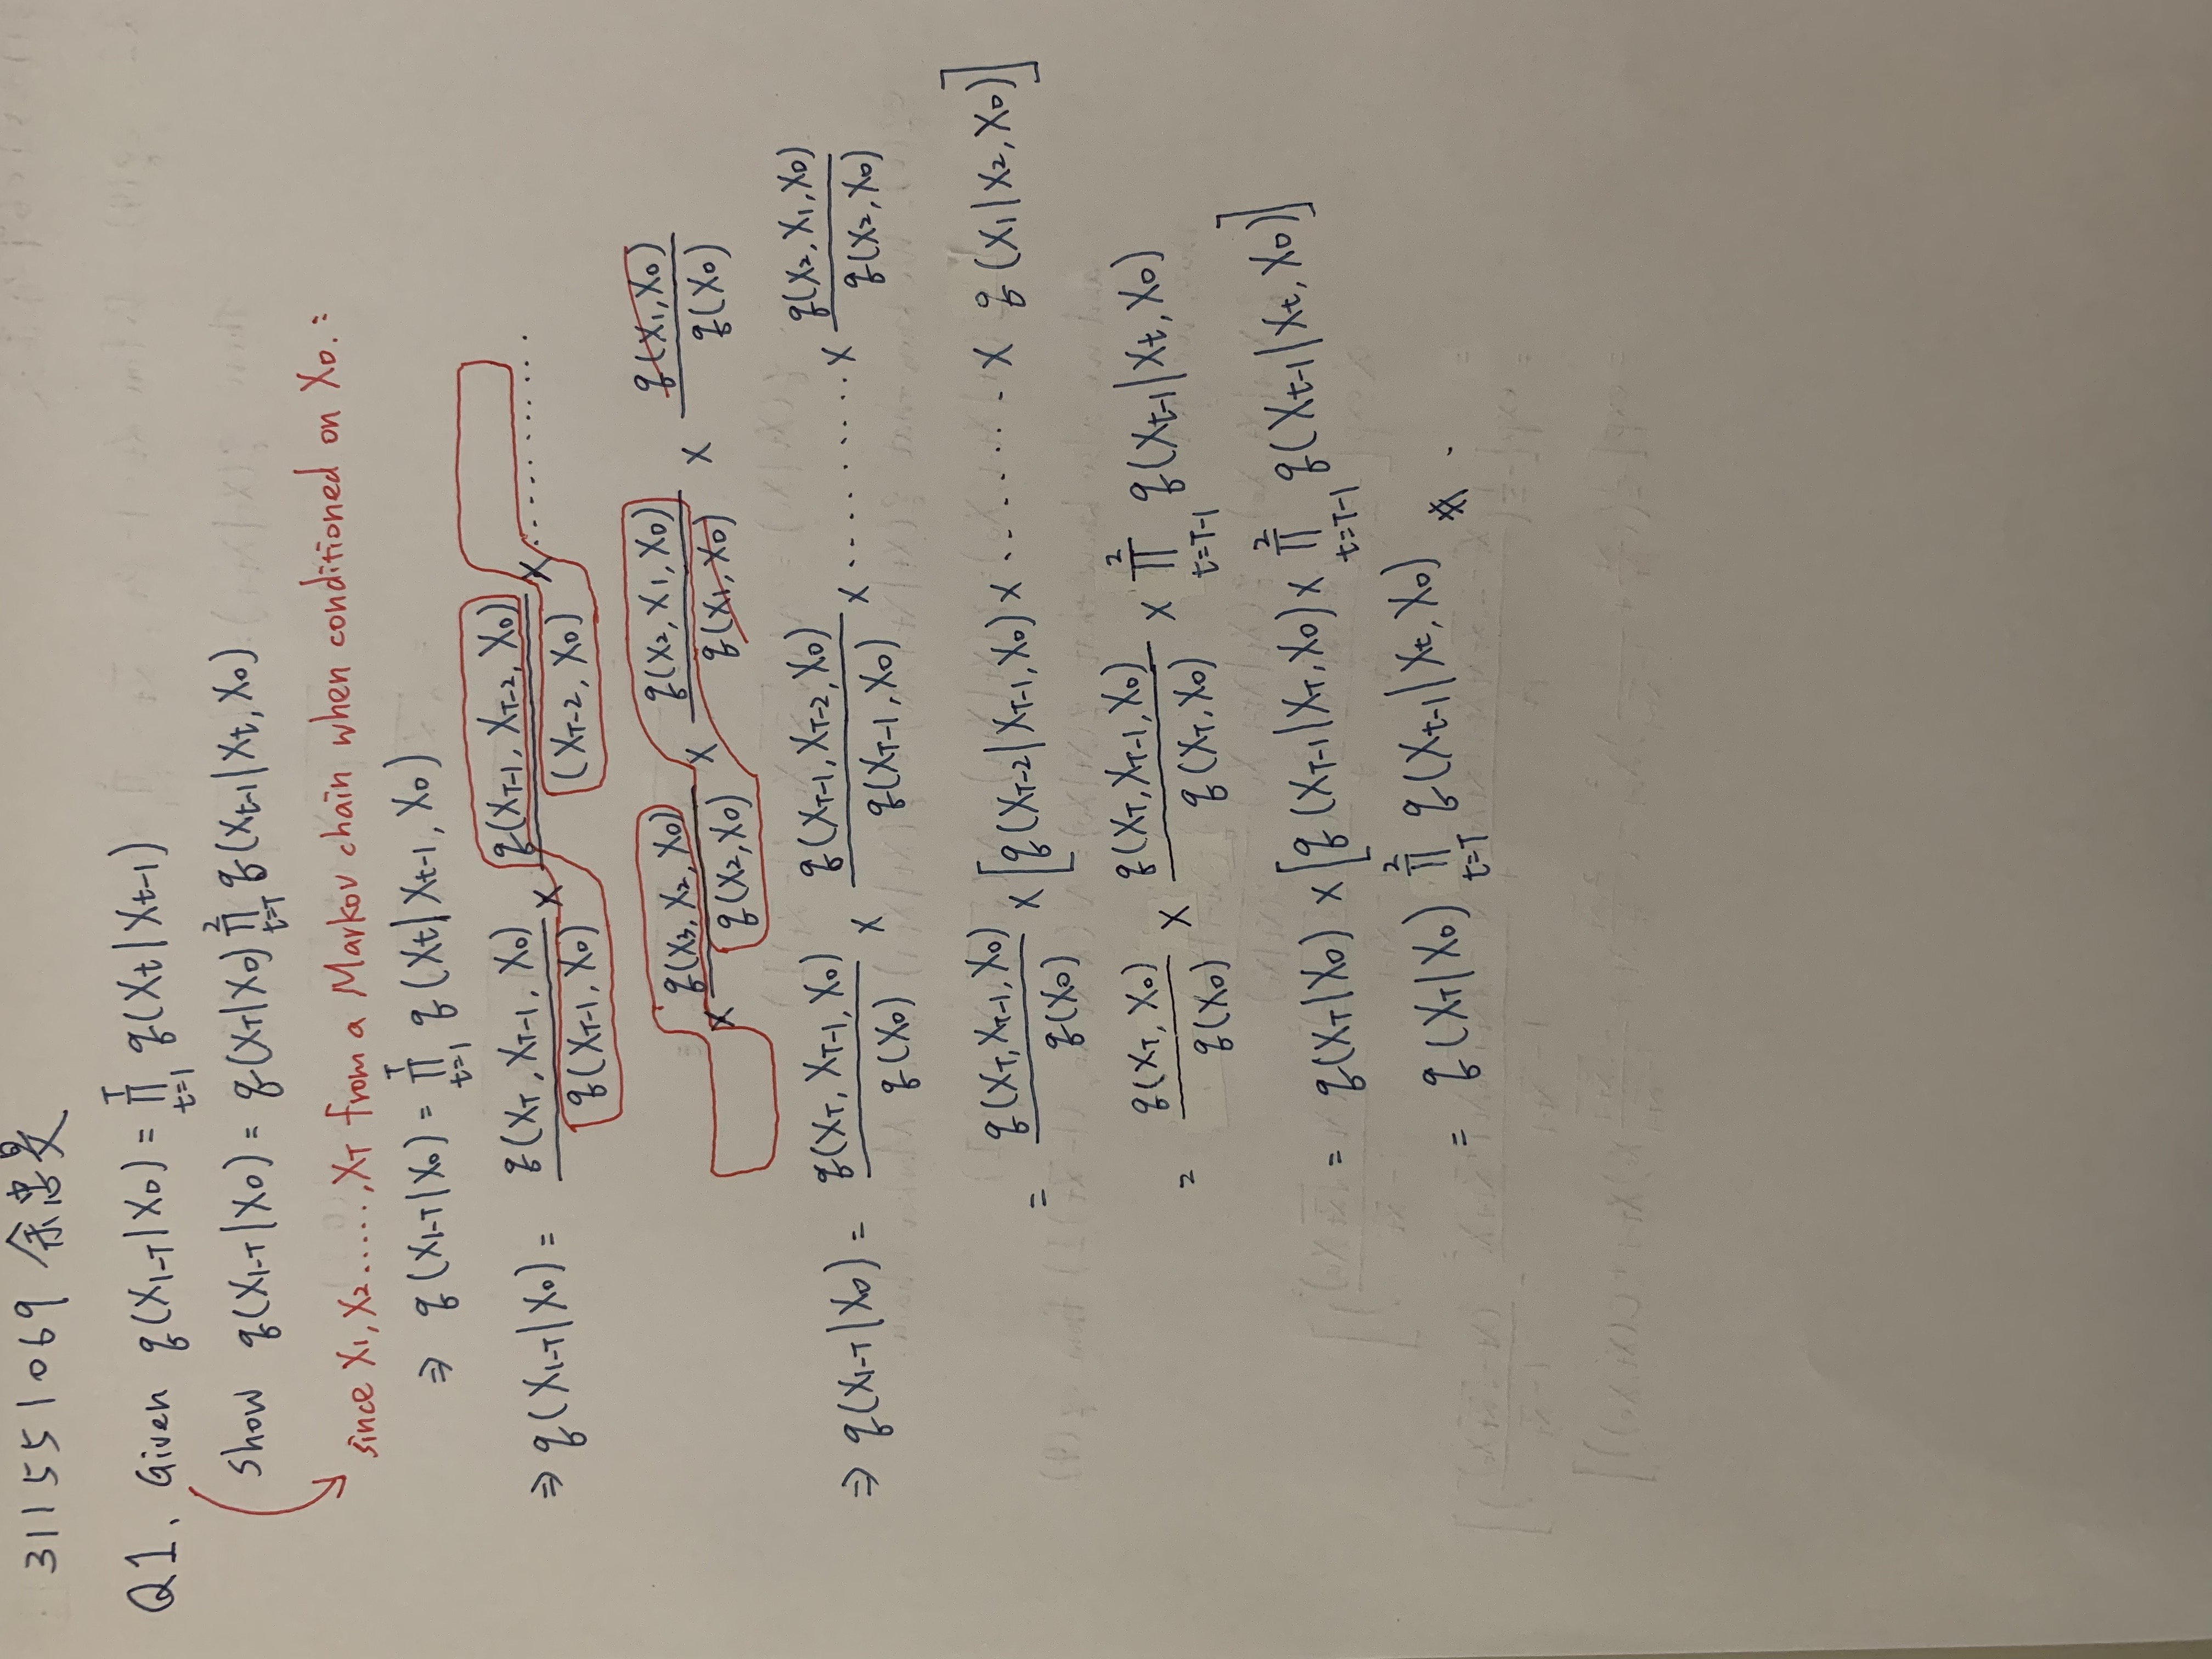 311551069 余忠旻
Q1. Given q(X1-T|X0) = ∏_{t=1}^{T} q(Xt|Xt-1)
show q(X1-T|X0) = q(XT|X0) ∏_{t=T}^{2} q(Xt-1|Xt, X0)
since X1, X2 ....., XT from a Markov chain when conditioned on X0. :
⇒ q(X1-T|X0) = ∏_{t=1}^{T} q(Xt|Xt-1, X0)
⇒ q(X1-T|X0) = q(XT, XT-1, X0) / q(XT-1, X0) × q(XT-1, XT-2, X0) / (XT-2, X0) × ..........
× q(X3, X2, X0) / q(X2, X0) × q(X2, X1, X0) / q(X1, X0) × q(X1, X0) / q(X0)
⇒ q(X1-T|X0) = q(XT, XT-1, X0) / q(X0) × q(XT-1, XT-2, X0) / q(XT-1, X0) × .......... × q(X2, X1, X0) / q(X2, X0)
= q(XT, XT-1, X0) / q(X0) × [q(XT-2|XT-1, X0) × ........ × q(X1|X2, X0)]
= q(XT, X0) / q(X0) × q(XT, XT-1, X0) / q(XT, X0) × ∏_{t=T-1}^{2} q(Xt-1|Xt, X0)
= q(XT|X0) × [q(XT-1|XT, X0) × ∏_{t=T-1}^{2} q(Xt-1|Xt, X0)]
= q(XT|X0) ∏_{t=T}^{2} q(Xt-1|Xt, X0) # .